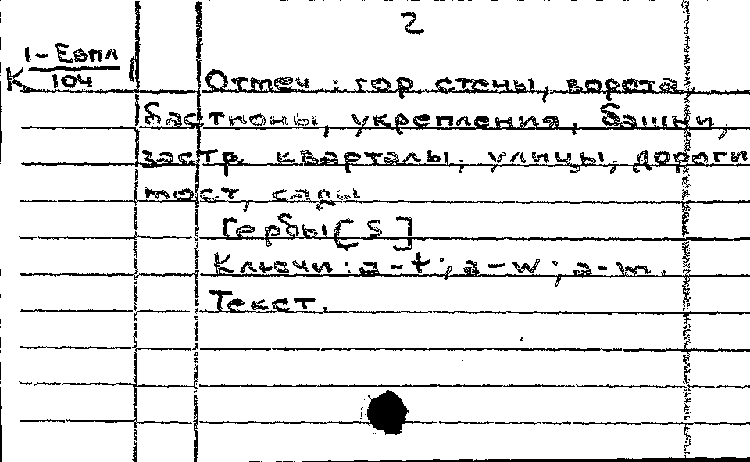 2
К 1-Евпл
104
Отмеч: гор стены, ворота,
бастионы, укрепления, башни,
застр. кварталы, улицы, дороги
мост, сады
Гербы [5]
Ключи: a-t; a-w; a-m.
Текст.